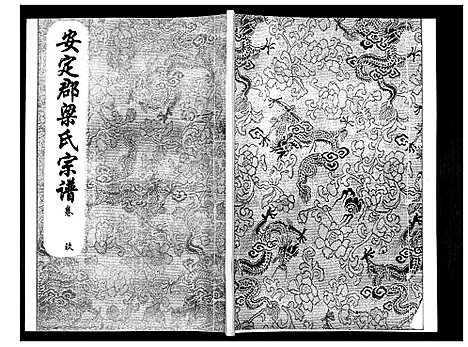 安定郡梁氏宗谱 卷 玖